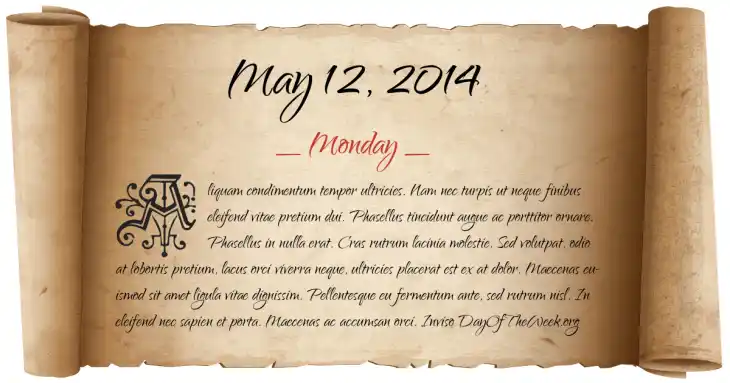 May 12, 2014
— Monday —
Aliquam condimentum tempor ultricies. Nam nec turpis ut neque finibus
eleifend vitae pretium dui. Phasellus tincidunt augue ac porttitor ornare.
Phasellus in nulla erat. Cras rutrum lacinia molestie. Sed volutpat, odio
at lobortis pretium, lacus orci viverra neque, ultricies placerat est ex at dolor. Maecenas eu-
ismod sit amet ligula vitae dignissim. Pellentesque eu fermentum ante, sed rutrum nisl. In
eleifend nec sapien et porta. Maecenas ac accumsan orci. Inviso DayOfTheWeek.org